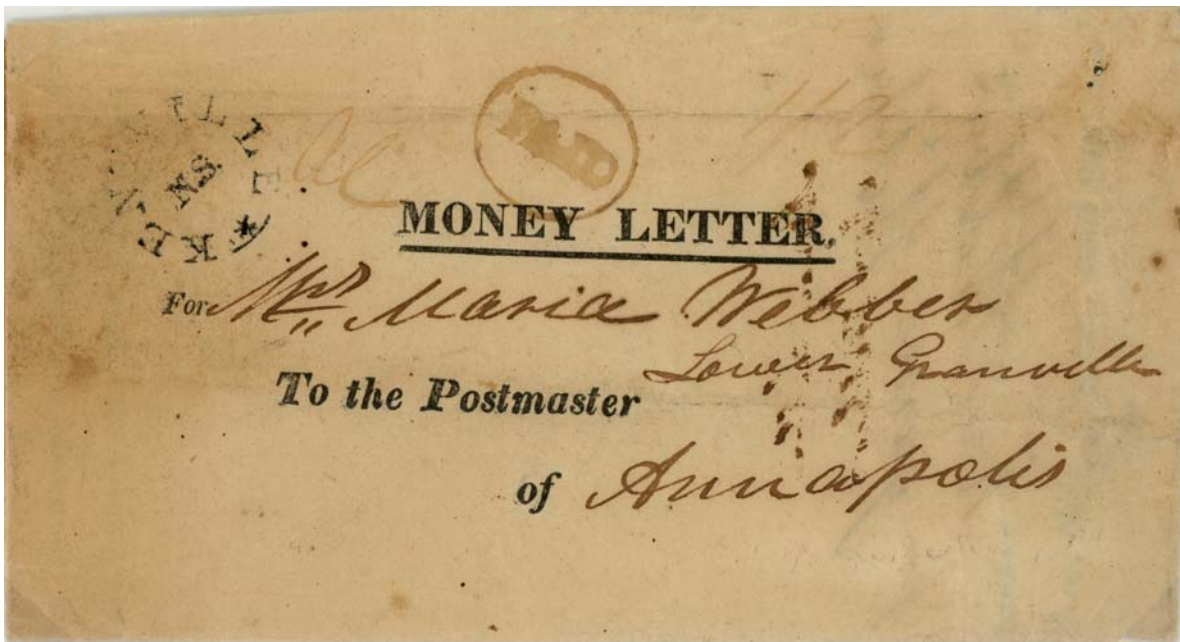 KENTVILLE
N.S.
PAID
MONEY LETTER.
For Mrs Maria Webber
Lower Granville
To the Postmaster
of Annapolis